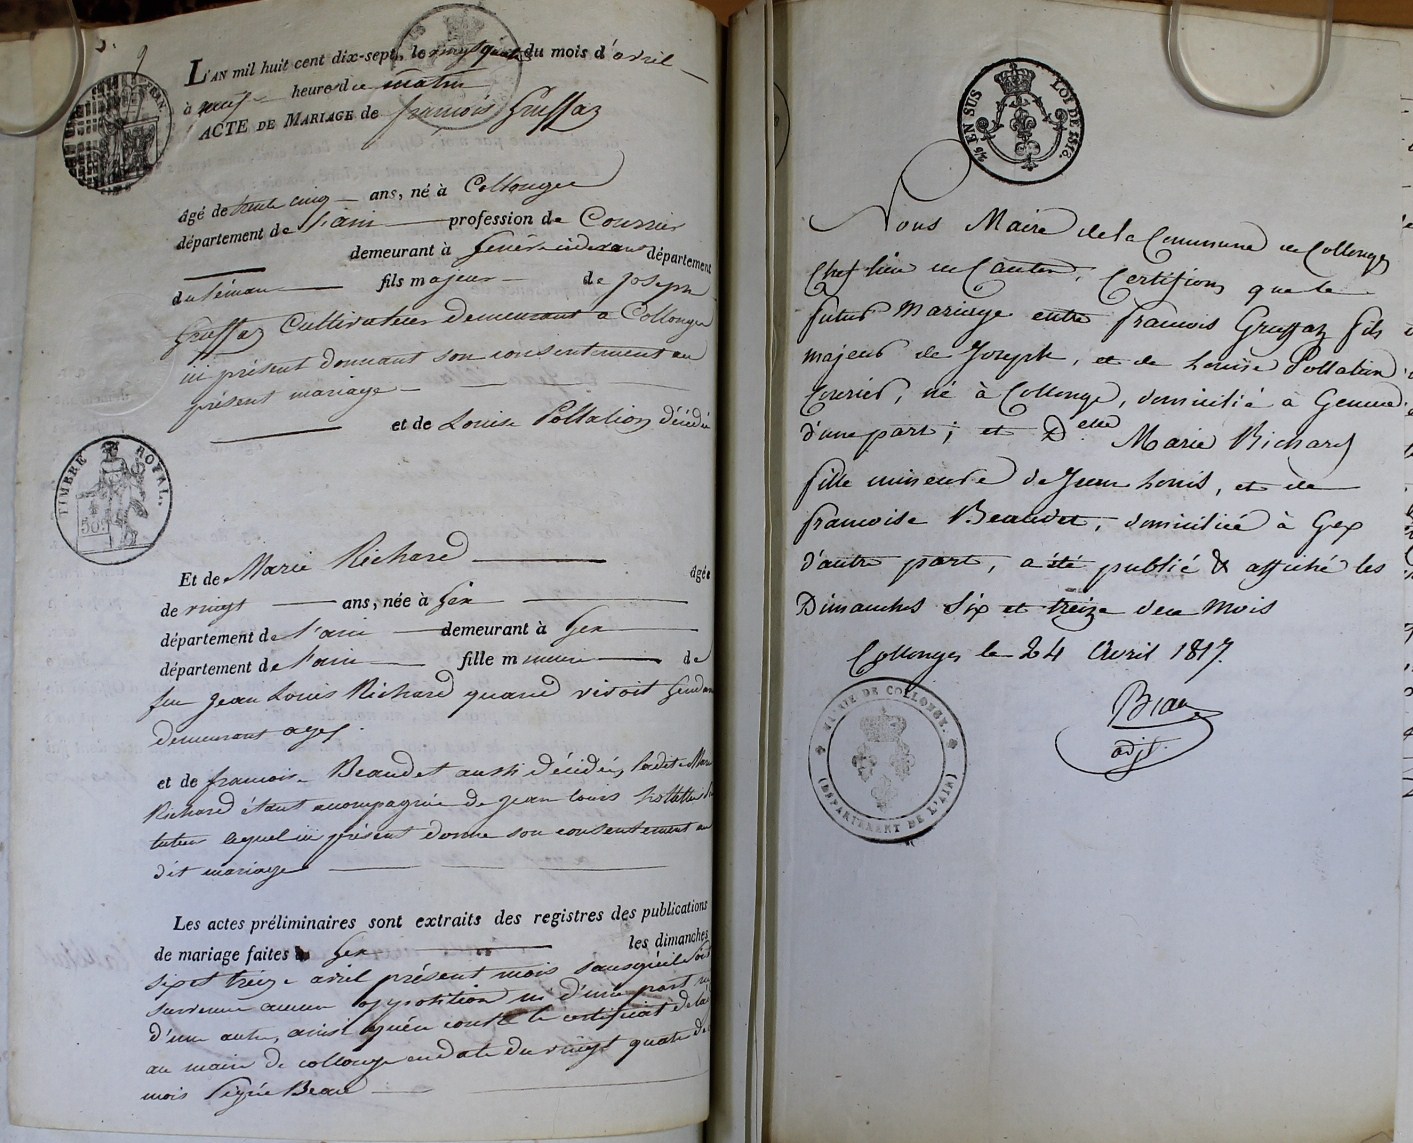 9
L'AN mil huit cent dix-sept, le vingt quatre du mois d'avril
à neuf heures du matin
ACTE DE MARIAGE de francois Gruffaz
âgé de trente cinq ans, né à Collonges
département de l'ain profession de Courrier
demeurant à département
du Léman fils majeur de joseph
Gruffaz Cultivateur demeurant a Collonges
ici présent donnant son consentement au
présent mariage
et de Louise Pollalion décédée
TIMBRE ROYAL.
Et de Marie Richard âgée
de vingt ans, née à Gex
département de l'ain demeurant à Gex
département de l'ain fille mineure de
feu Jean Louis Richard quand vivoit
demeurant a gex.
et de francoise Beaudet aussi décédée, ladite Marie
Richard étant acompagnée de jean louis
tuteur lequel ici présent donne son consentement au
dit mariage
Les actes préliminaires sont extraits des registres des publications
de mariage faites à Gex les dimanches
six et treize avril présent mois sans qu'il soit
survenu aucune oppotition ni d'une part ni
d'une autre, ainsi qu'en conste le certificat de la
au maire de collonge en date du vingt quatre du
mois signé Beau
45 EN SUS LOI DE 1816.
Nous Maire de la Commune de Collonges
Chef lieu de Canton, Certifions que le
futur Mariage entre francois Gruffaz fils
majeur de Joseph, et de Louise Pollalion
Courier, né à Collonge, domicilié à Geneve
d'une part; et Delle Marie Richard
fille mineure de Jean Louis, et de
francoise Beaudet, domiciliée à Gex
d'autre part, a été publié & affiché les
Dimanches Six et treize dece Mois
Collonges le 24 Avril 1817.
Beau
adjt.
MAIRIE DE COLLONGE.
(DÉPARTEMENT DE L'AIN)